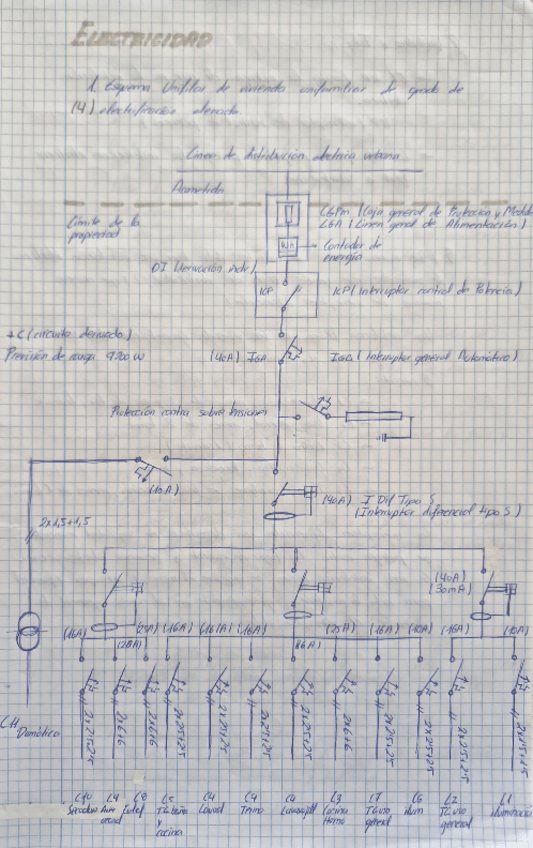 ELECTRICIDAD
1. Esquema Unifilar de vivienda unifamiliar de grado de
(4) electrificación elevado.
Línea de distribución eléctrica urbana
Acometida
CGPM (Caja general de Protección y Medida
LGA (Línea general de Alimentación)
Límite de la
propiedad
Contador de
energía
DI (derivación indiv.)
ICP
ICP (Interruptor control de Potencia)
(circuito derivado)
Previsión de carga 9200 W
(40A) IGA
(Interruptor general Automático)
Protección contra sobretensiones
(10A)
2x1,5+1,5
(40A) I Dif Tipo S
(Interruptor diferencial tipo S)
(40A)
(30mA)
(16A) (20A) (25A) (16A) (16A) (16A) (16A) (25A) (16A) (10A) (16A) (10A)
2x6+6
2x6+6
2x6+6
Domótica
C10 C9 C8 C5 C4 C4 C4 C3 C7 C6 C2 C1
Secadora Aire
acond
TC baño
y
cocina
Lavad
Termo
Lavavajill
Cocina
Horno
TC uso
general
ilum
TC uso
general
iluminación